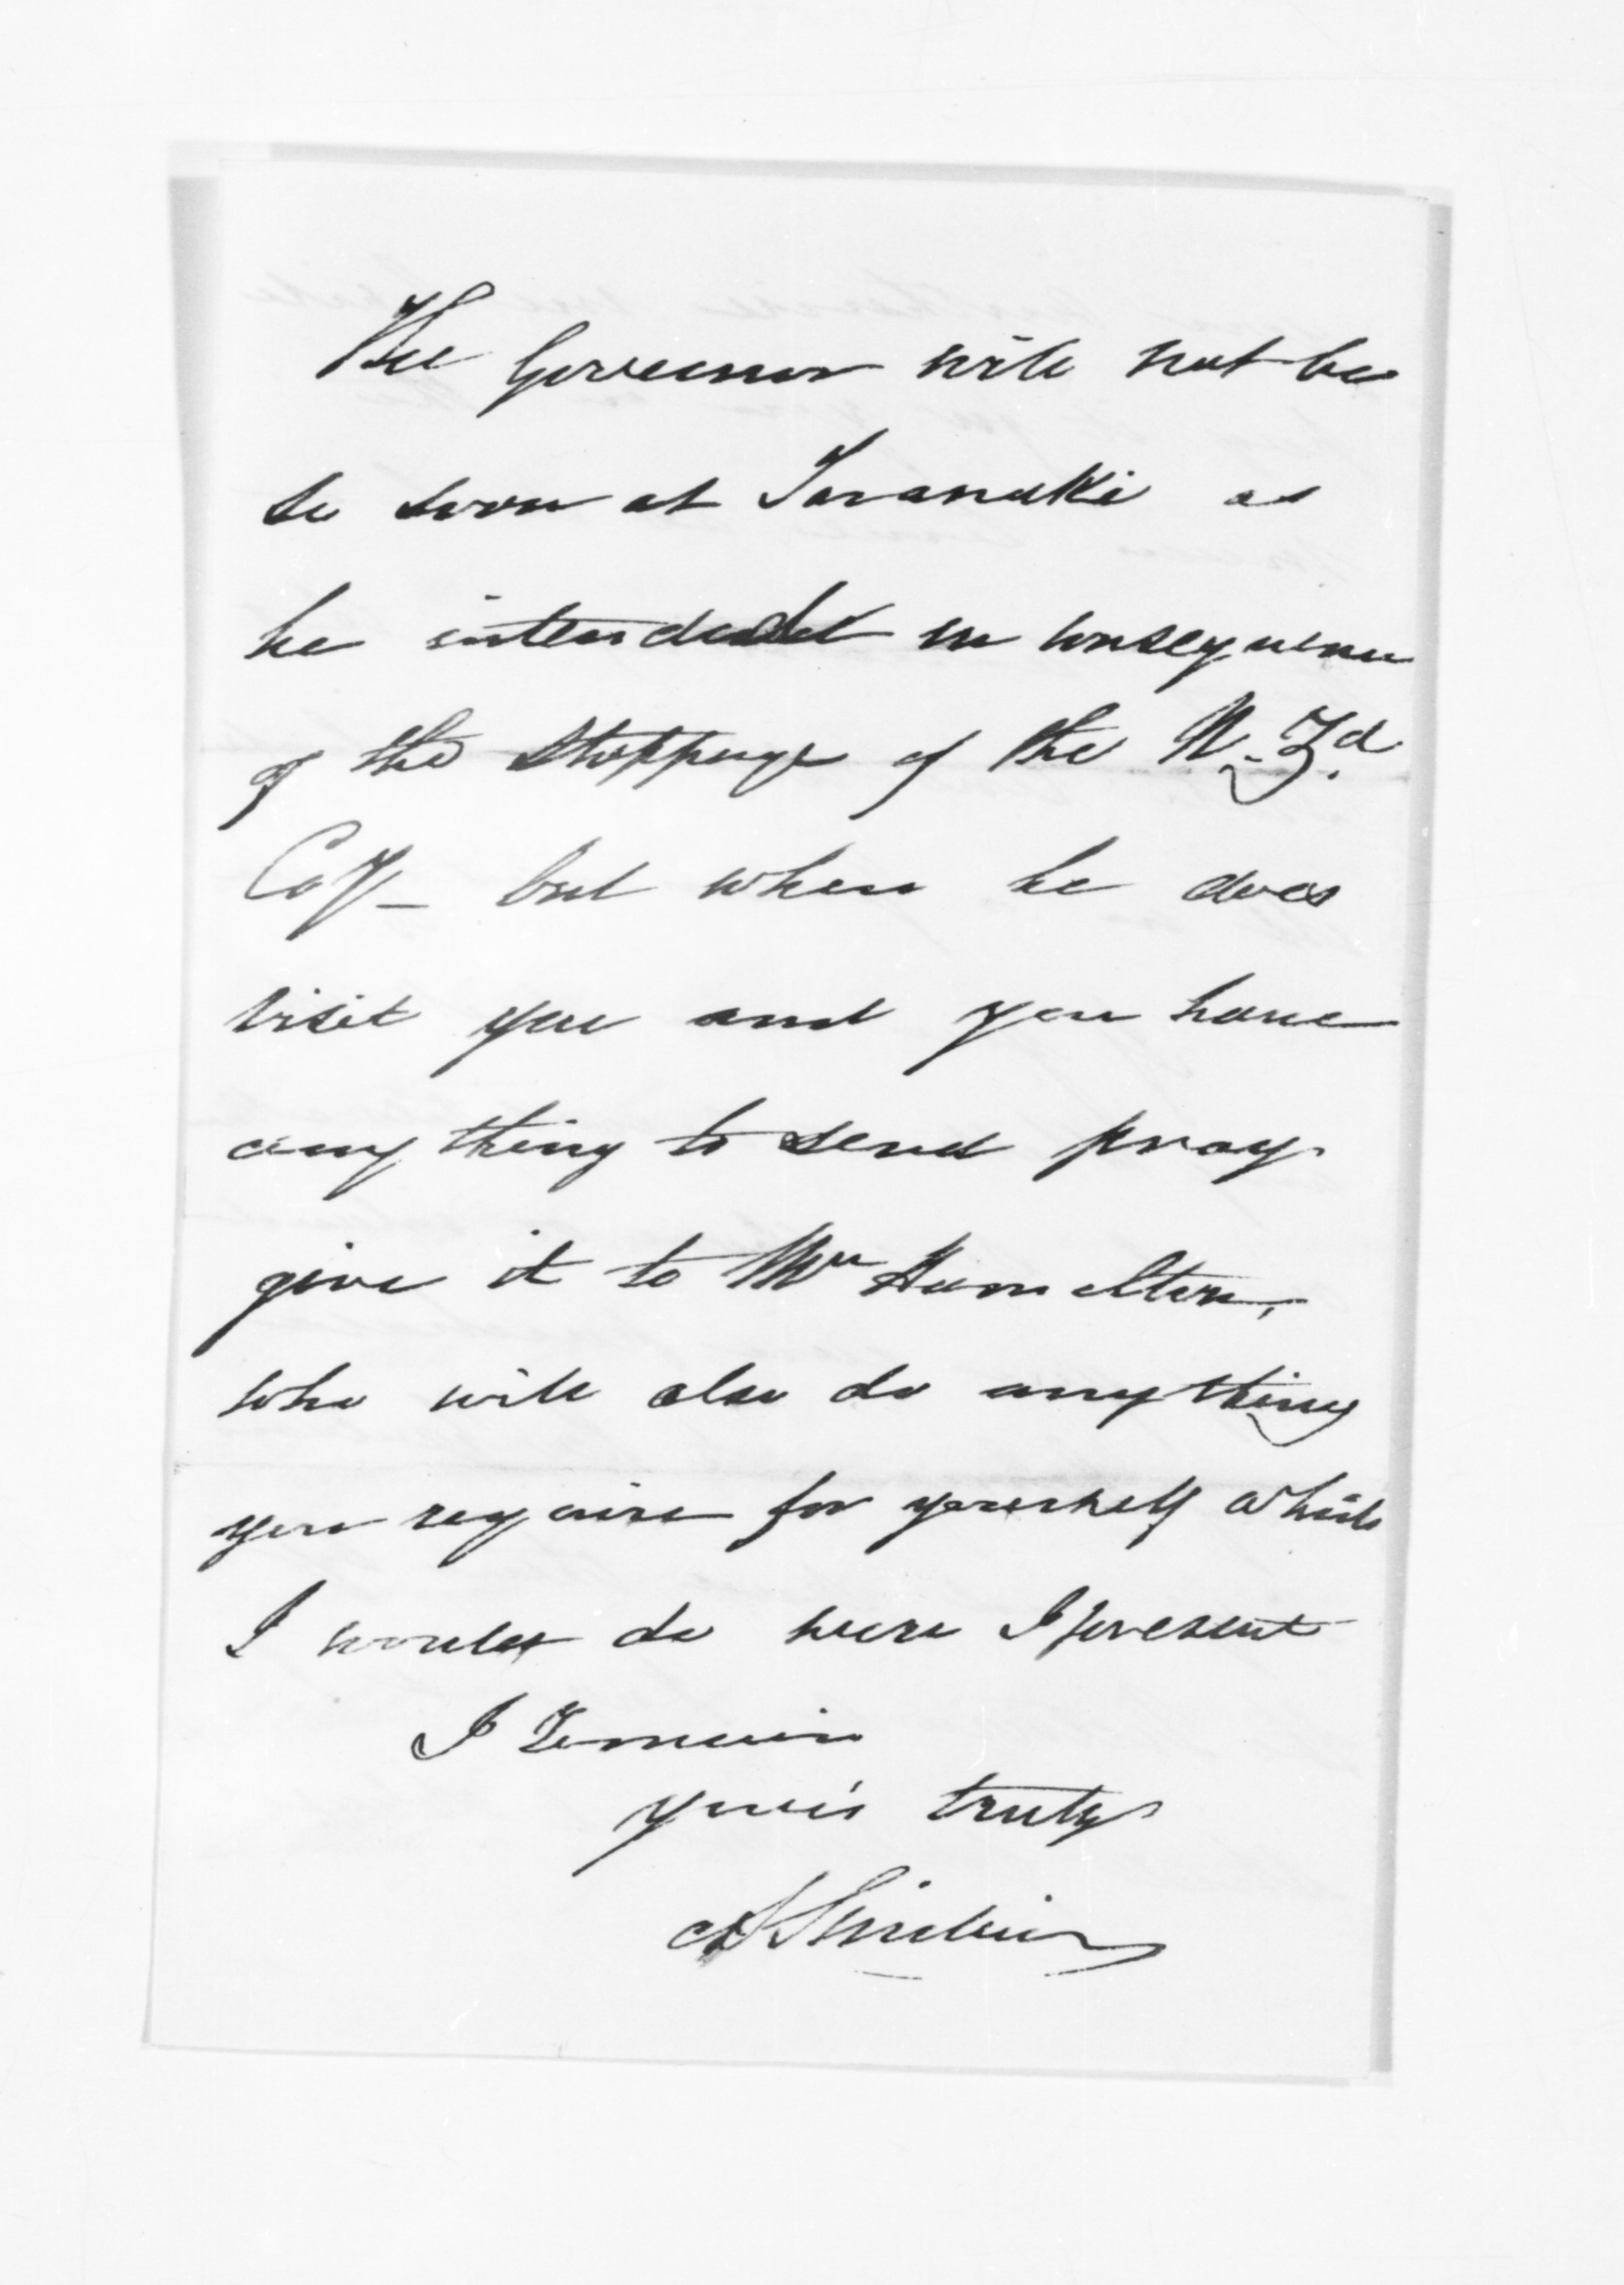 The Governor will not be
so soon at Taranaki as
he intended in consequence
of the stoppage of the N. Zd.
Coy - but when he does
visit you and you have
any thing to send pray
give it to Mr Hamelton,
who will also do any thing
you require for yourself which
I would do were I present
I remain
yours truly
A Sinclair